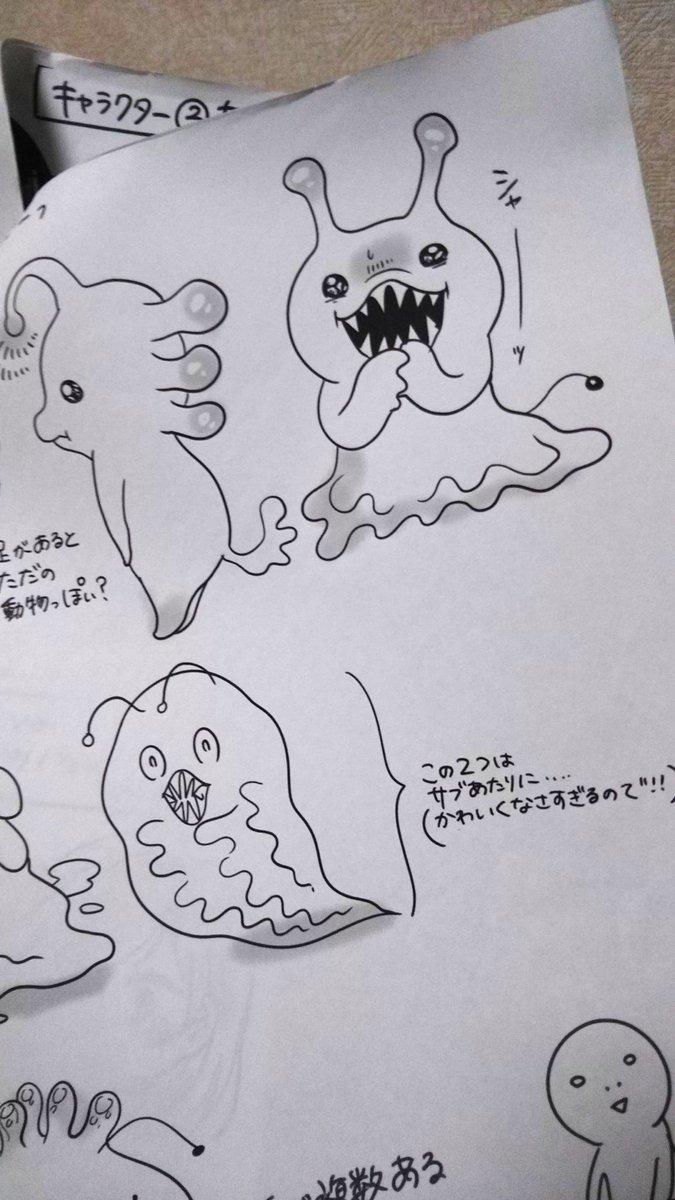 キャラクター②
シャーッ
足があると
ただの
動物っぽい?
この2つは
サブあたりに・・・・
(かわいくなさすぎるので!!)
複数ある